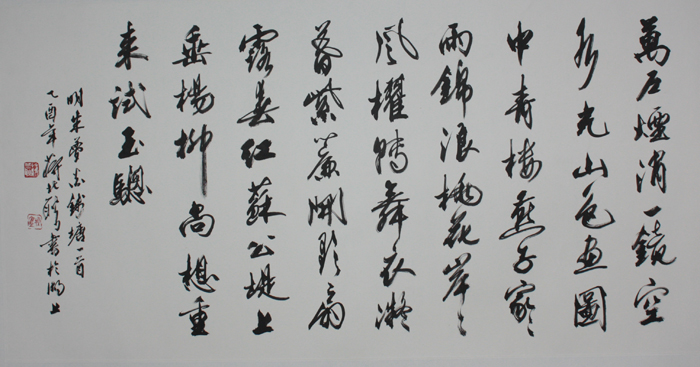 萬戶煙消一鏡空
水光山色畫圖
中青樓燕子家〻
雨錦浪桃花岸〻
風櫂舞衣凝
暮紫簾開歌扇
露春紅蘇公堤上
垂楊柳尚想重
來試玉驄
明朱夢炎錢塘一首
乙酉年書於湖上